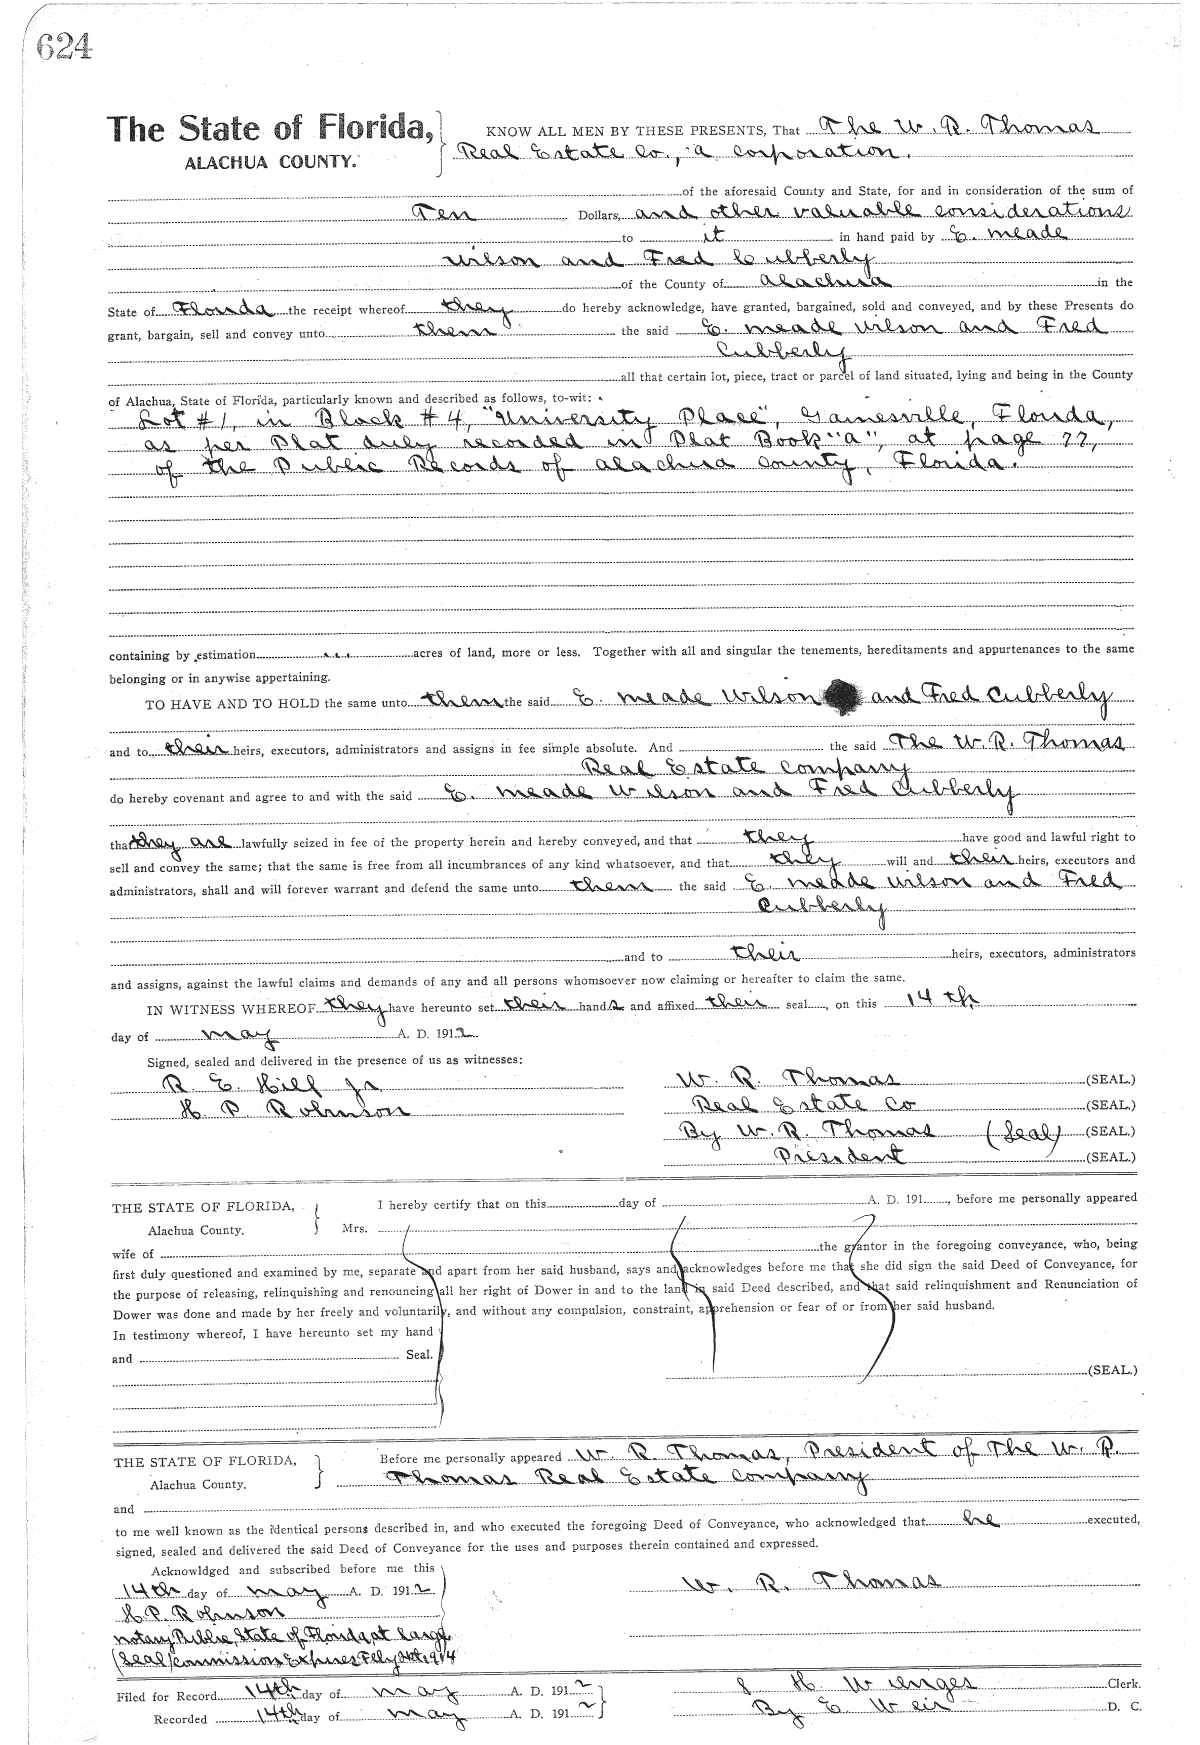 624
The State of Florida, KNOW ALL MEN BY THESE PRESENTS, That The W. R. Thomas
ALACHUA COUNTY. Real Estate Co., a corporation.
of the aforesaid County and State, for and in consideration of the sum of
Ten Dollars, and other valuable considerations
to it in hand paid by E. Meade
Wilson and Fred Cubberly
of the County of Alachua in the
State of Florida the receipt whereof they do hereby acknowledge, have granted, bargained, sold and conveyed, and by these Presents do
grant, bargain, sell and convey unto them the said E. Meade Wilson and Fred
Cubberly
all that certain lot, piece, tract or parcel of land situated, lying and being in the County
of Alachua, State of Florida, particularly known and described as follows, to-wit:
Lot #1, in Block #4, "University Place", Gainesville, Florida,
as per Plat duly recorded in Plat Book "A", at page 77,
of the Public Records of Alachua County, Florida.
containing by estimation acres of land, more or less. Together with all and singular the tenements, hereditaments and appurtenances to the same
belonging or in anywise appertaining.
TO HAVE AND TO HOLD the same unto them the said E. Meade Wilson and Fred Cubberly
and to their heirs, executors, administrators and assigns in fee simple absolute. And the said The W. R. Thomas
Real Estate Company
do hereby covenant and agree to and with the said E. Meade Wilson and Fred Cubberly
that they are lawfully seized in fee of the property herein and hereby conveyed, and that they have good and lawful right to
sell and convey the same; that the same is free from all incumbrances of any kind whatsoever, and that they will and their heirs, executors and
administrators, shall and will forever warrant and defend the same unto them the said E. Meade Wilson and Fred
Cubberly
and to their heirs, executors, administrators
and assigns, against the lawful claims and demands of any and all persons whomsoever now claiming or hereafter to claim the same.
IN WITNESS WHEREOF they have hereunto set their hands and affixed their seal, on this 14th
day of May A. D. 1912
Signed, sealed and delivered in the presence of us as witnesses:
R. E. Hill Jr. W. R. Thomas (SEAL.)
H. P. Robinson Real Estate Co (SEAL.)
By W. R. Thomas (Seal) (SEAL.)
President (SEAL.)
THE STATE OF FLORIDA, I hereby certify that on this day of A. D. 191 , before me personally appeared
Alachua County. Mrs.
wife of the grantor in the foregoing conveyance, who, being
first duly questioned and examined by me, separate and apart from her said husband, says and acknowledges before me that she did sign the said Deed of Conveyance, for
the purpose of releasing, relinquishing and renouncing all her right of Dower in and to the land in said Deed described, and that said relinquishment and Renunciation of
Dower was done and made by her freely and voluntarily, and without any compulsion, constraint, apprehension or fear of or from her said husband.
In testimony whereof, I have hereunto set my hand
and Seal.
(SEAL.)
THE STATE OF FLORIDA, Before me personally appeared W. R. Thomas, President of The W. R.
Alachua County. Thomas Real Estate Company
and
to me well known as the identical persons described in, and who executed the foregoing Deed of Conveyance, who acknowledged that he executed,
signed, sealed and delivered the said Deed of Conveyance for the uses and purposes therein contained and expressed.
Acknowldged and subscribed before me this
14th day of May A. D. 1912 W. R. Thomas
H. P. Robinson
Notary Public, State of Florida, at Large
(Seal) Commission Expires Feby 1914
Filed for Record 14th day of May A. D. 1912 S H Wienges Clerk.
Recorded 14th day of May A. D. 1912 By E. Weir D. C.